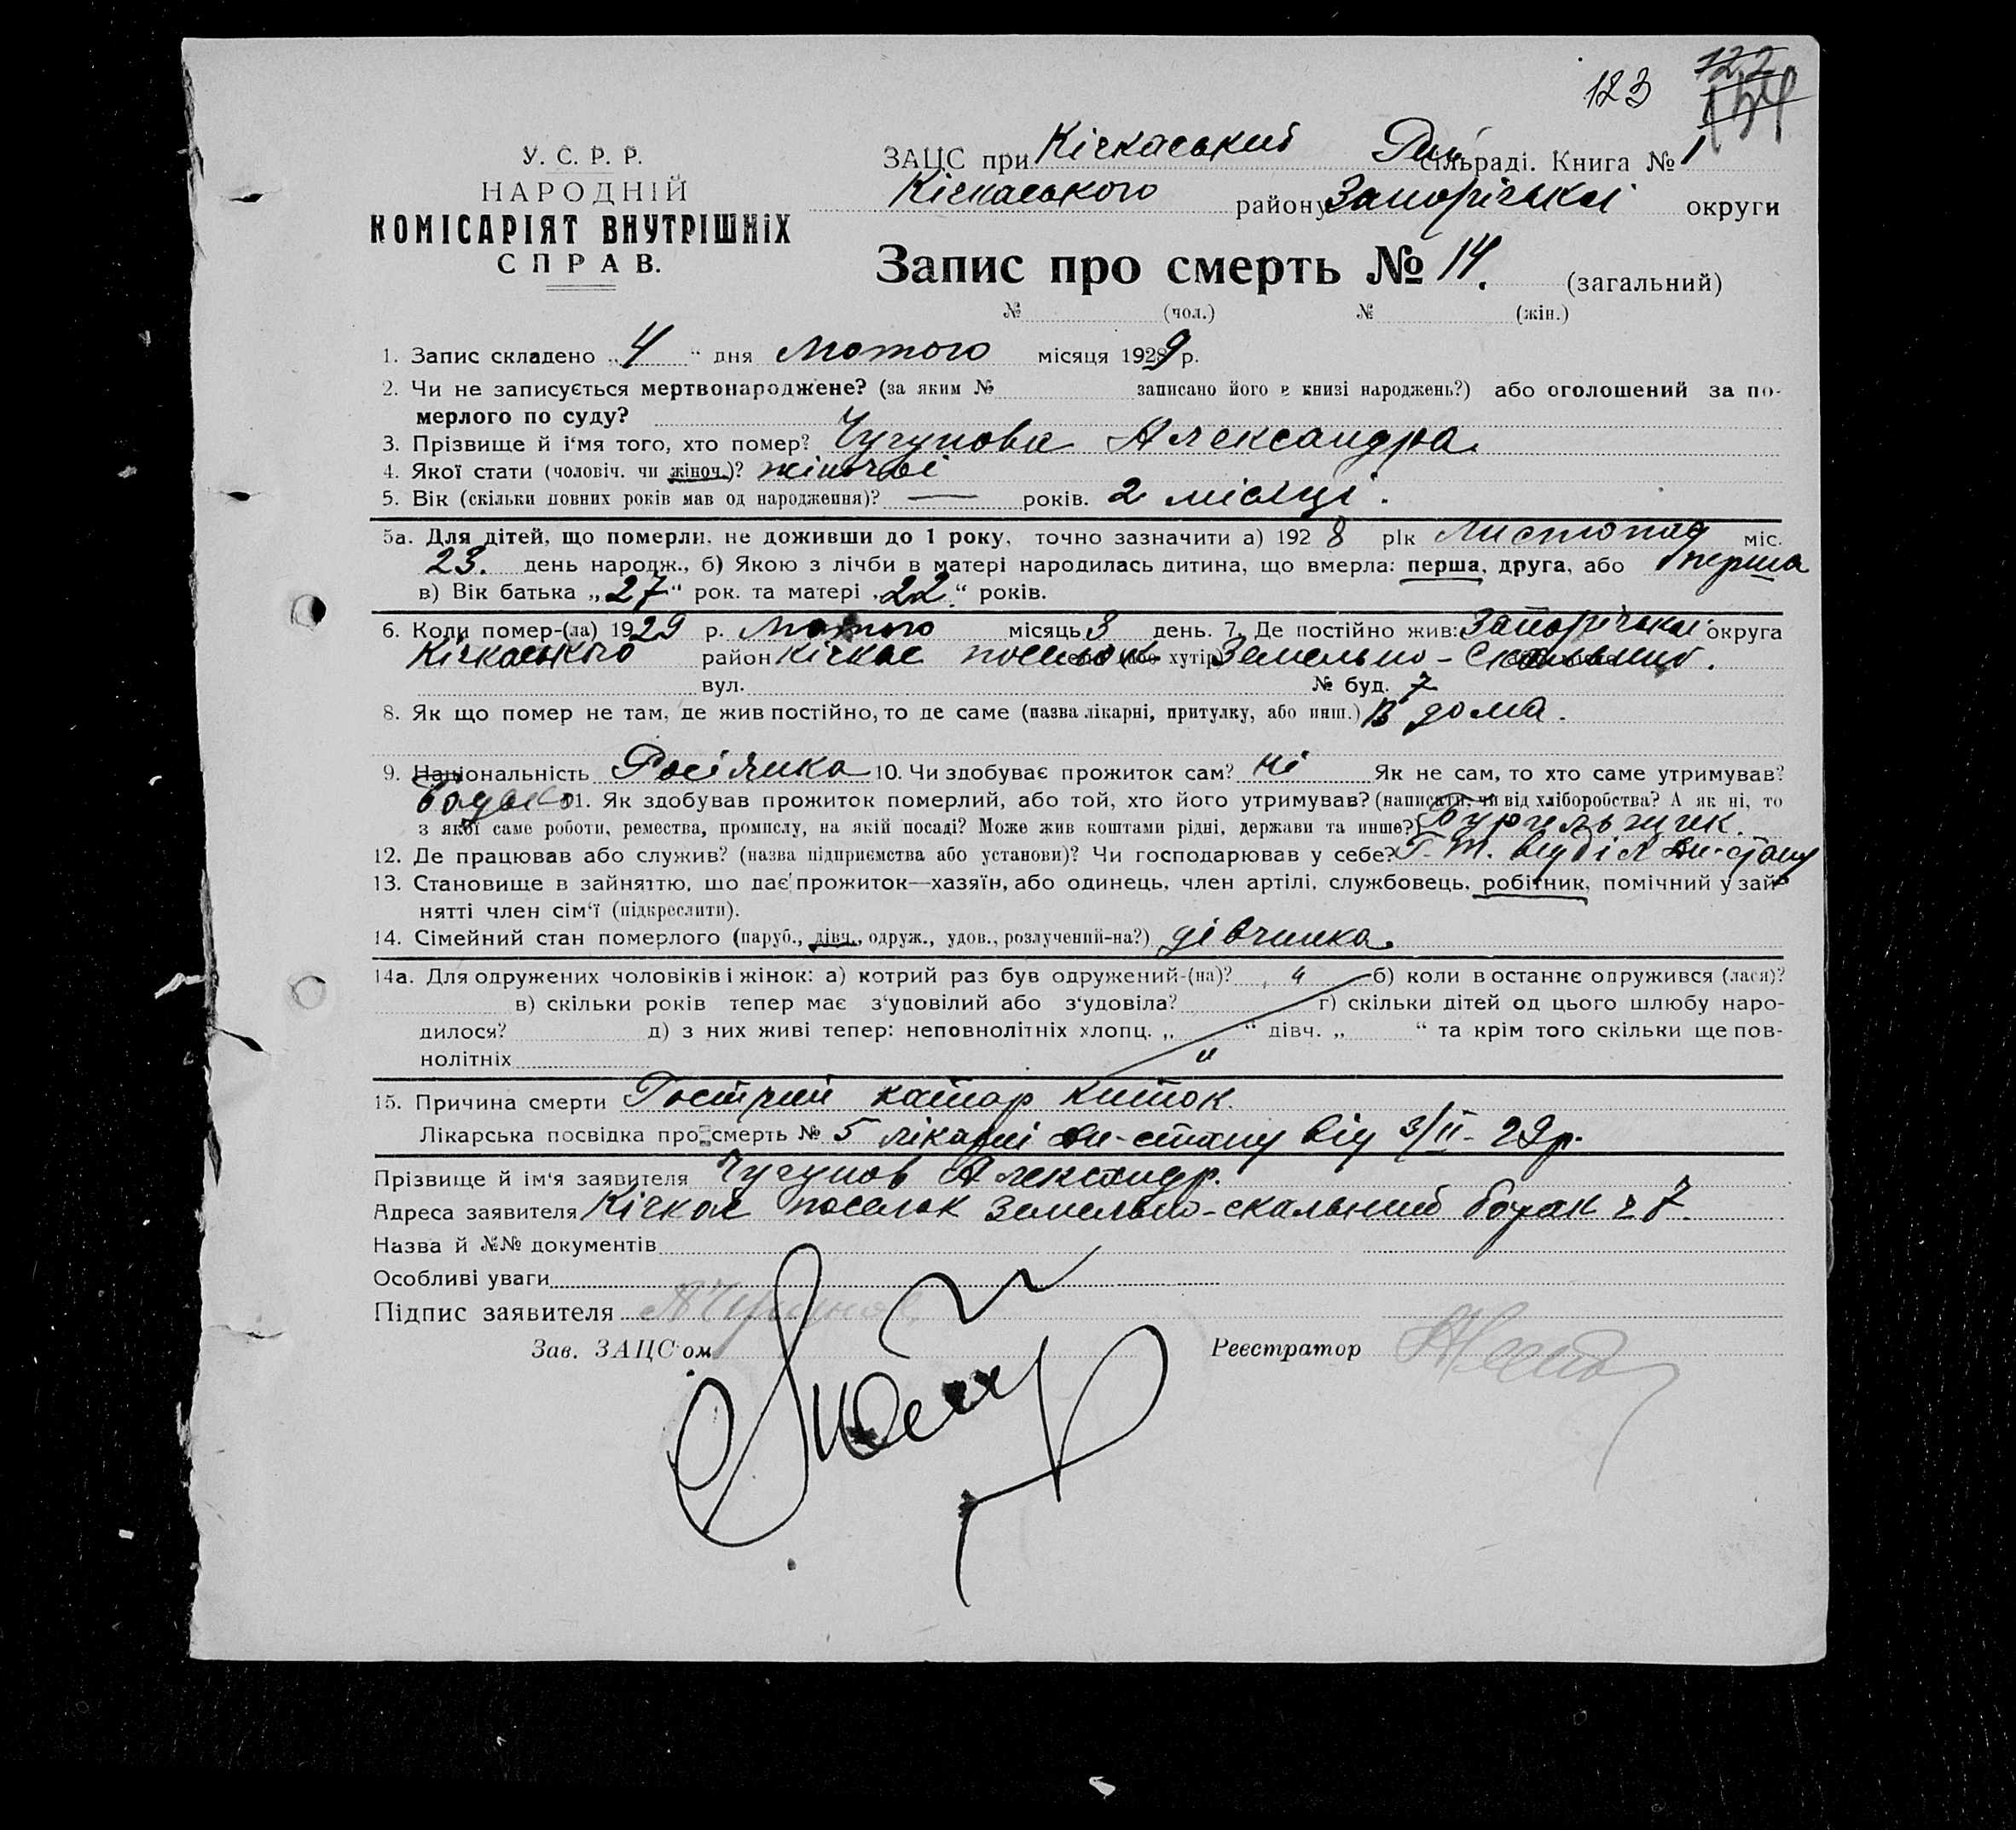 123 122
У. С. Р. Р.
НАРОДНІЙ
КОМІСАРІЯТ ВНУТРІШНІХ
СПРАВ.
ЗАЦС при Кічкаський Рай. сільраді. Книга № 1
Кічкаського району Запорізької округи
Запис про смерть № 14. (загальний)
№ (чол.) № (жін.)
1. Запис складено „4“ дня Лютого місяця 1929 р.
2. Чи не записується мертвонароджене? (за яким № записано його в книзі народжень?) або оголошений за по-
мерлого по суду?
3. Прізвище й і'мя того, хто помер? Чугунова Александра.
4. Якої стати (чоловіч. чи жіноч.)? жіночої
5. Вік (скільки повних років мав од народження)? — років. 2 місяці.
5а. Для дітей, що померли, не доживши до 1 року, точно зазначити а) 1928 рік Листопад міс.
23. день народж., б) Якою з лічби в матері народилась дитина, що вмерла: перша, друга, або перша
в) Вік батька „27“ рок. та матері „22“ років.
6. Коли помер-(ла) 1929 р. Лютого місяць 3 день. 7. Де постійно жив: Запорізької округа
Кічкаського район Кічкас поселок (або хутір) Земельно-Скальний.
вул. № буд. 7
8. Як що помер не там, де жив постійно, то де саме (назва лікарні, притулку, або инш.) В дома.
9. Національність Росіянка 10. Чи здобуває прожиток сам? ні Як не сам, то хто саме утримував?
Батько 11. Як здобував прожиток померлий, або той, хто його утримував? (написати, чи від хліборобства? А як ні, то
з якої саме роботи, ремества, промислу, на якій посаді? Може жив коштами рідні, держави та инше?) Бурильщик.
12. Де працював або служив? (назва підприємства або установи)? Чи господарював у себе?
13. Становище в зайняттю, що дає прожиток—хазяїн, або одинець, член артілі, службовець, робітник, помічний у зай-
нятті член сім'ї (підкреслити).
14. Сімейний стан померлого (паруб., дівч., одруж., удов., розлучений-на?) дівчинка.
14а. Для одружених чоловіків і жінок: а) котрий раз був одружений-(на)? б) коли востаннє одружився (лася)?
в) скільки років тепер має з'удовілий або з'удовіла? г) скільки дітей од цього шлюбу наро-
дилося? д) з них живі тепер: неповнолітніх хлопц. „ “ дівч. „ “ та крім того скільки ще пов-
нолітніх
15. Причина смерти Гострий катар кишок.
Лікарська посвідка про смерть № 5 лікарні Дн-стану від 3/II-29р.
Прізвище й ім'я заявителя Чугунов Александр.
Адреса заявителя Кічкас поселок Земельно-скальний барак ч 7.
Назва й №№ документів
Особливі уваги
Підпис заявителя А Чугунов
Зав. ЗАЦС'ом Реєстратор